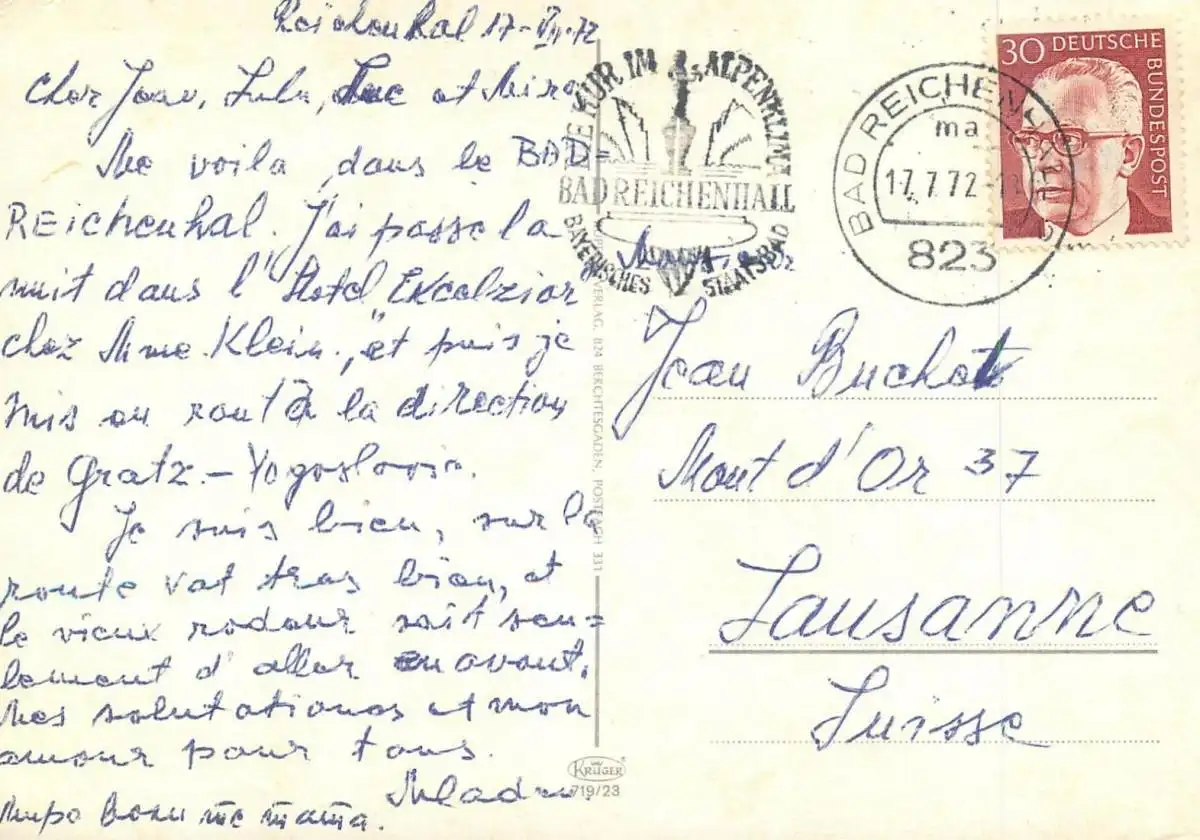 Reichenhal 17-VII-72
Cher Jean, Lulu, Luc et Mira
Me voila, dans le BAD=
REichenhal. J'ai passe la
nuit dans l'"Hotel Excelzior
chez Mme. Klein.", et puis je
mis en route à la direction
de Gratz - Yogoslavia.
Je suis bien, sur la
route vat tras bien, et
le vieux rodeur sait seu=
lement d'aller en avant.
Mes salutationes et mon
amour pour tous.
Mladen.
Миро воли те тата.
KUR IM ALPENKLIMA
BAD REICHENHALL
BAYERISCHES STAATSBAD
BAD REICHENHALL
ma
17.7.72
823
30 DEUTSCHE
BUNDESPOST
Monsieur
Jean Buchet
Mont d'Or 37
Lausanne
Suisse
VERLAG, 824 BERCHTESGADEN, POSTFACH 331
KRÜGER
719/23